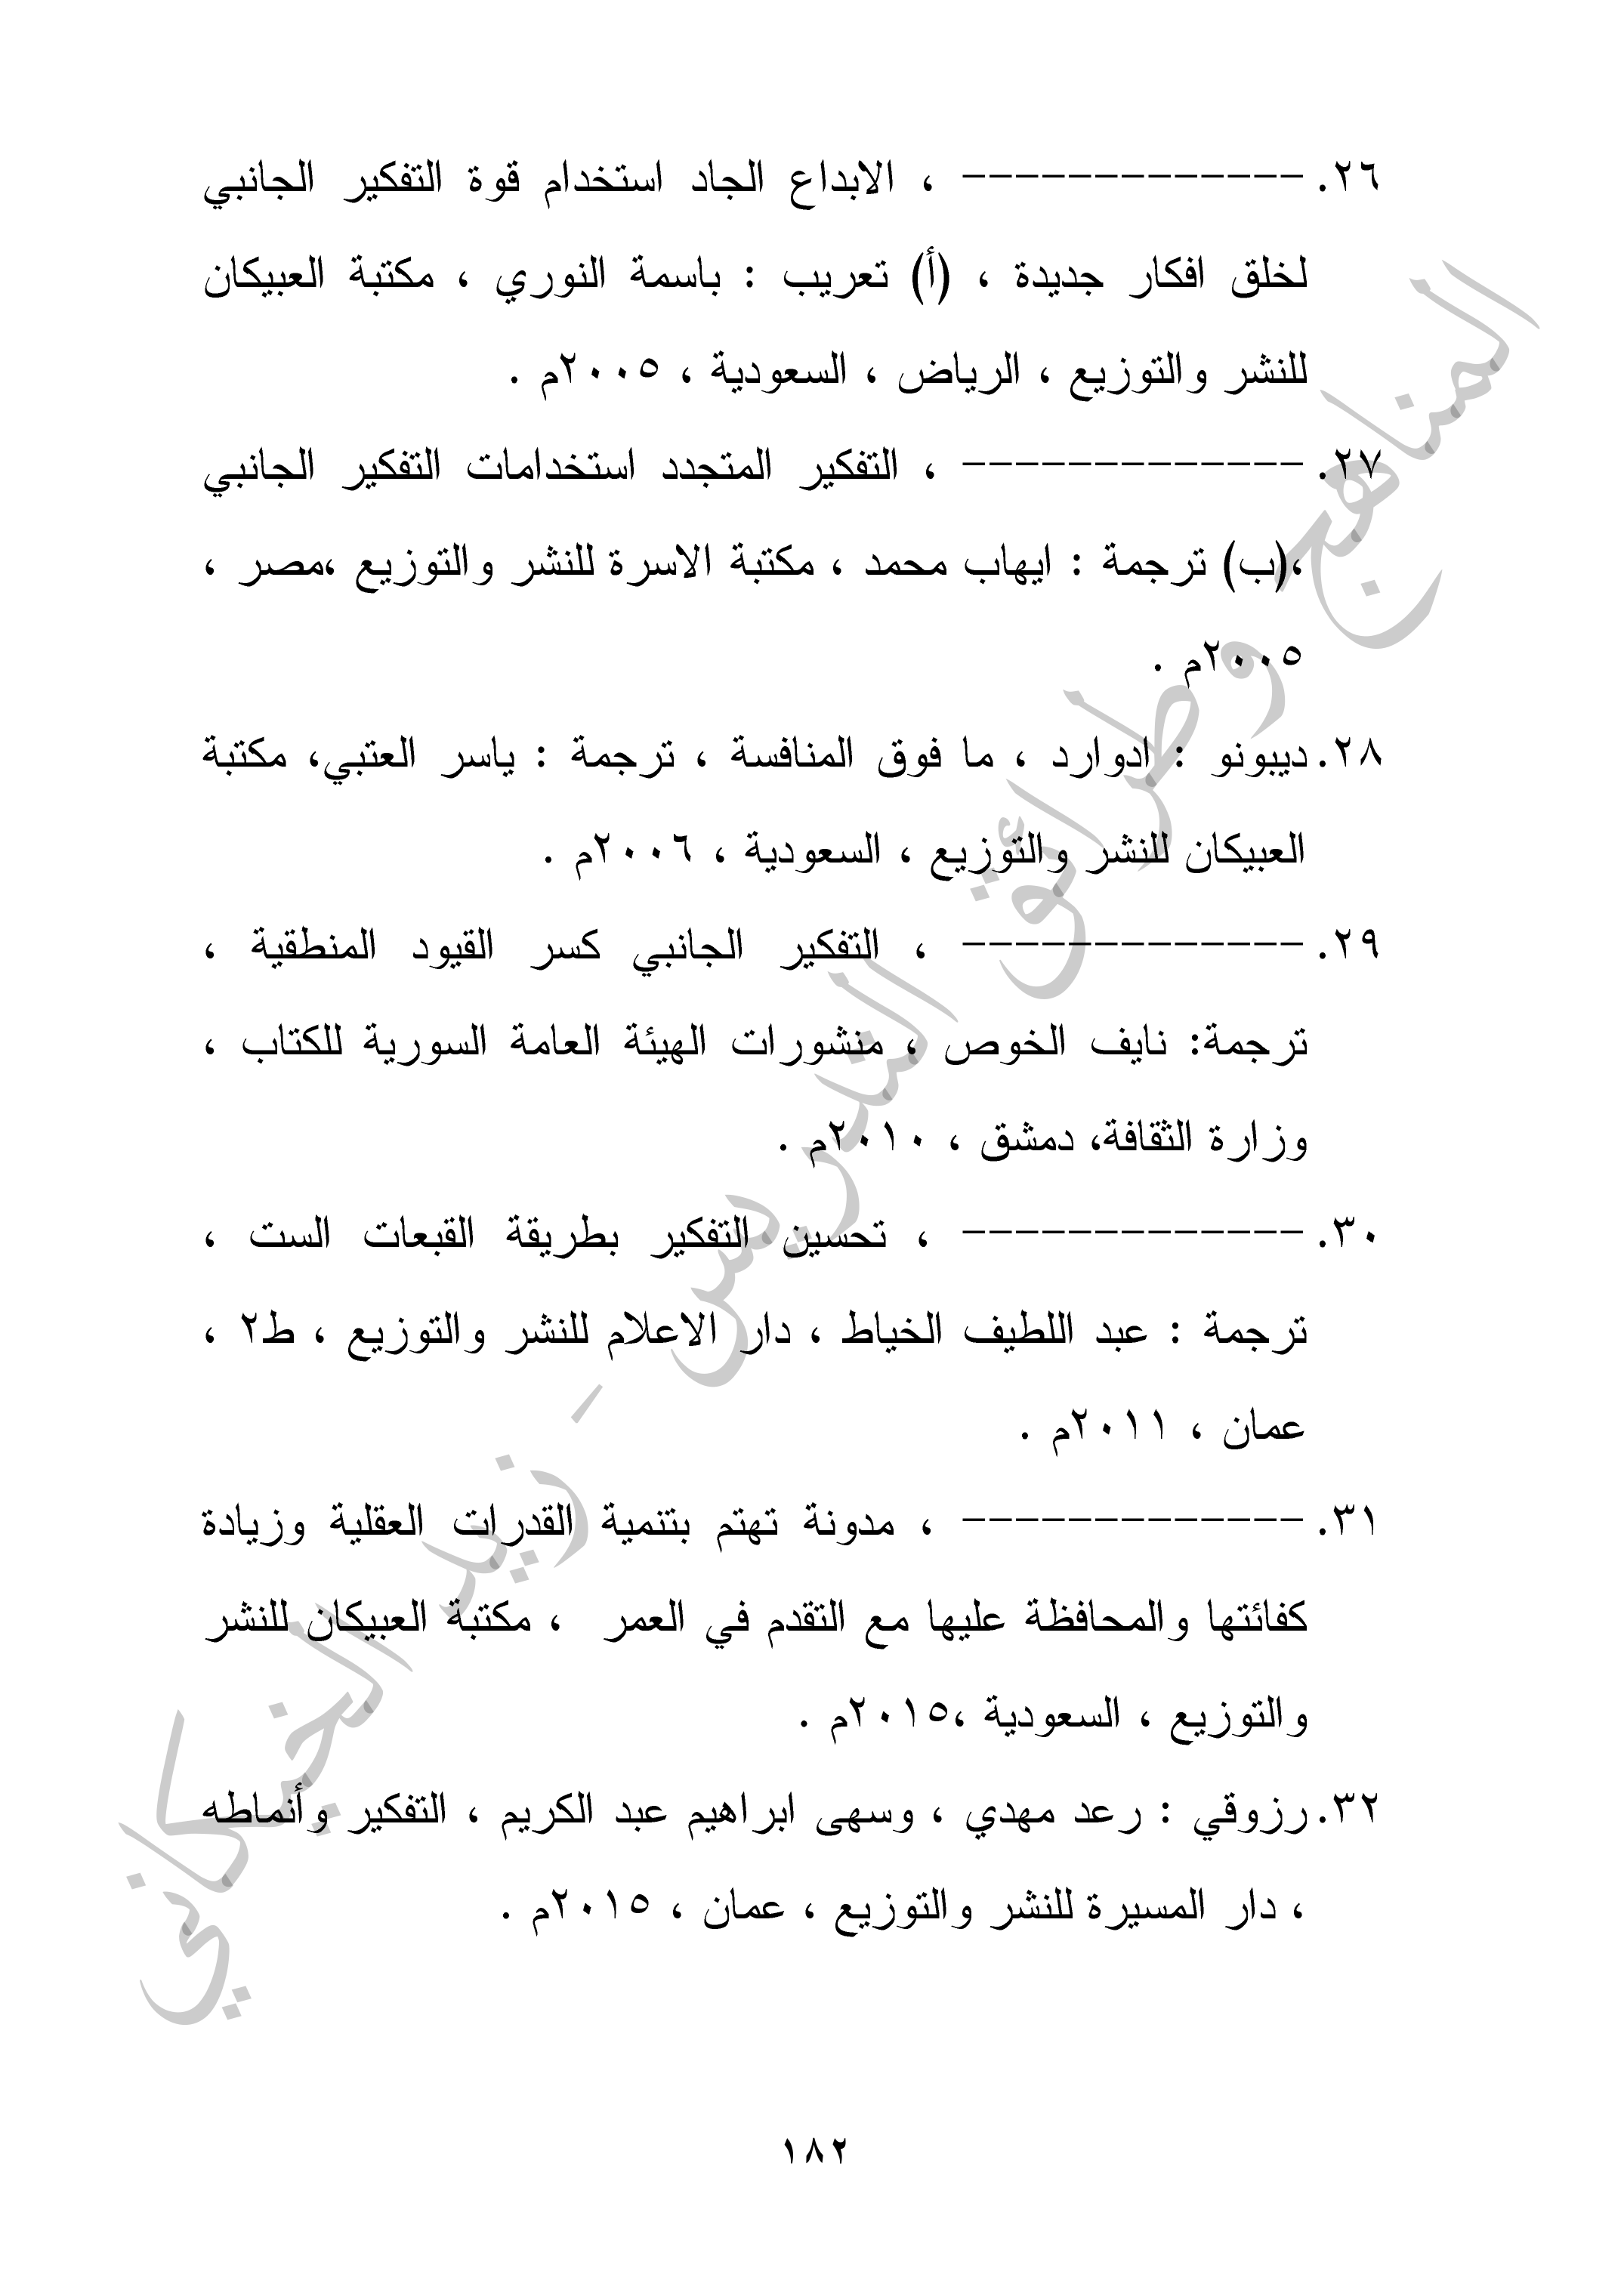 ٢٦. ------------- ، الابداع الجاد استخدام قوة التفكير الجانبي
لخلق افكار جديدة ، (أ) تعريب : باسمة النوري ، مكتبة العبيكان
للنشر والتوزيع ، الرياض ، السعودية ، ٢٠٠٥م .
٢٧. ------------- ، التفكير المتجدد استخدامات التفكير الجانبي
،(ب) ترجمة : ايهاب محمد ، مكتبة الاسرة للنشر والتوزيع ،مصر ،
٢٠٠٥م .
٢٨. ديبونو : ادوارد ، ما فوق المنافسة ، ترجمة : ياسر العتبي، مكتبة
العبيكان للنشر والتوزيع ، السعودية ، ٢٠٠٦م .
٢٩. ------------- ، التفكير الجانبي كسر القيود المنطقية ،
ترجمة: نايف الخوص ، منشورات الهيئة العامة السورية للكتاب ،
وزارة الثقافة، دمشق ، ٢٠١٠م .
٣٠. ------------- ، تحسين التفكير بطريقة القبعات الست ،
ترجمة : عبد اللطيف الخياط ، دار الاعلام للنشر والتوزيع ، ط٢ ،
عمان ، ٢٠١١م .
٣١. ------------- ، مدونة تهتم بتنمية القدرات العقلية وزيادة
كفائتها والمحافظة عليها مع التقدم في العمر ، مكتبة العبيكان للنشر
والتوزيع ، السعودية ،٢٠١٥م .
٣٢. رزوقي : رعد مهدي ، وسهى ابراهيم عبد الكريم ، التفكير وأنماطه
، دار المسيرة للنشر والتوزيع ، عمان ، ٢٠١٥م .
المناهج وطرائق التدريس - زيد الخيكاني
١٨٢